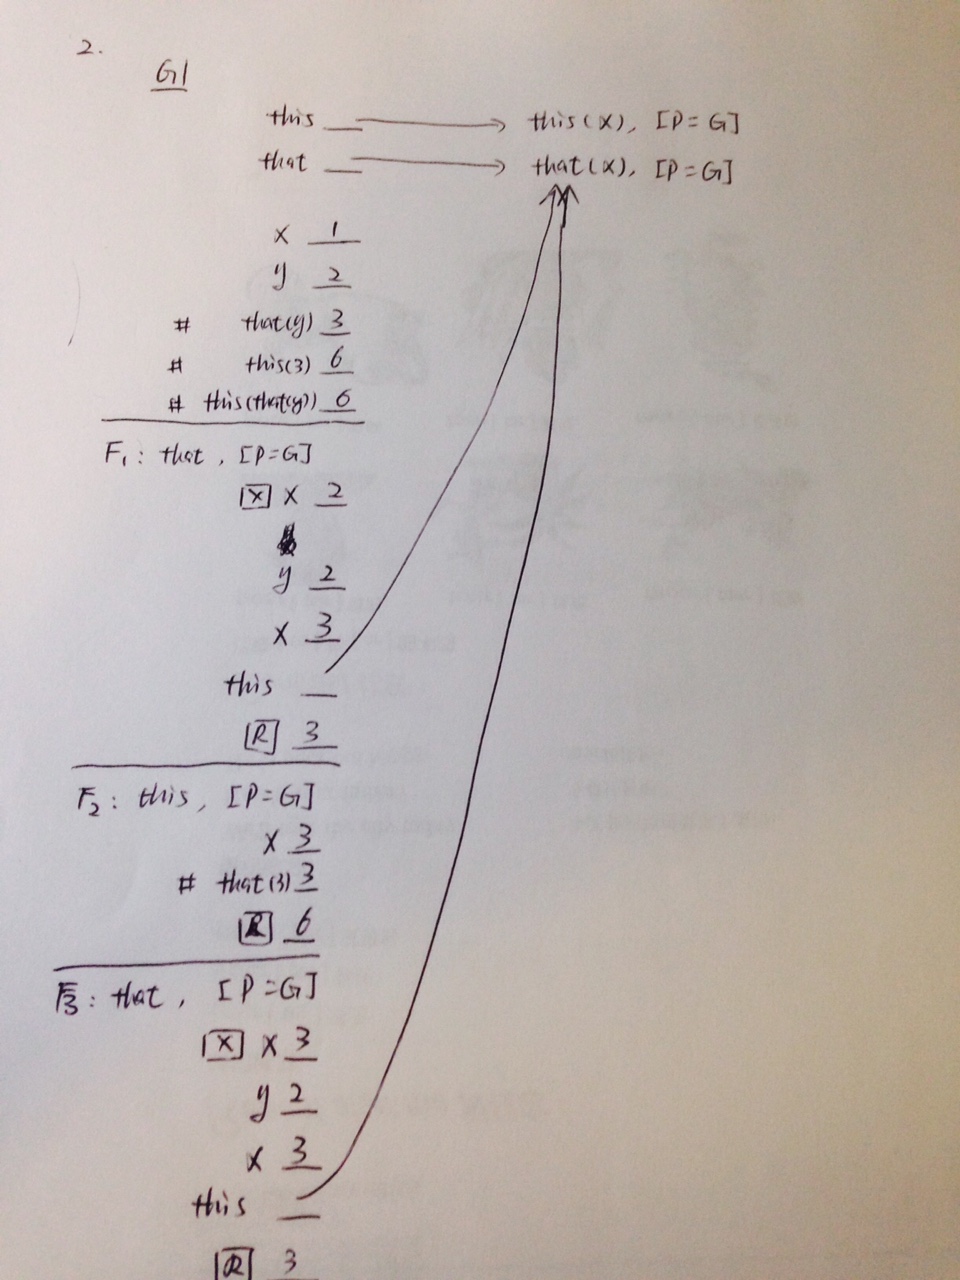 2.
G1
this __ → this(x), [P=G]
that __ → that(x), [P=G]
x 1
y 2
# that(y) 3
# this(3) 6
# this(that(y)) 6
F1: that, [P=G]
x x 2
y 2
x 3
this __
R 3
F2: this, [P=G]
x 3
# that(3) 3
R 6
F3: that, [P=G]
x x 3
y 2
x 3
this __
R 3